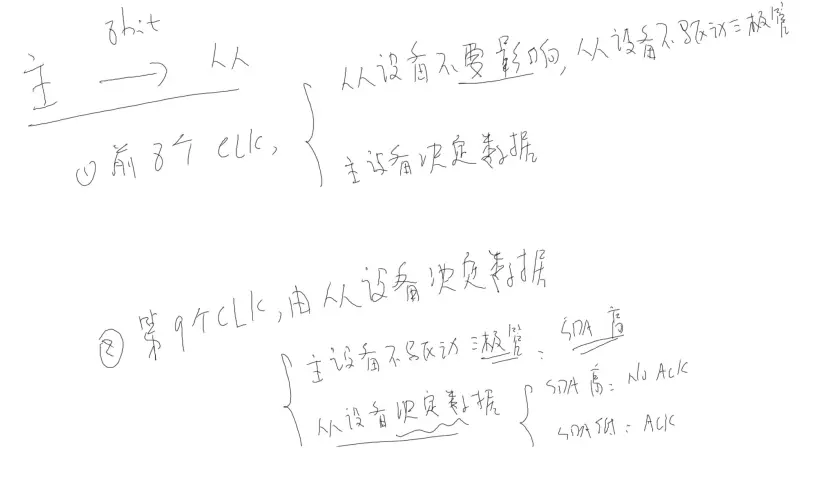 8bit
主 → 从
① 前8个CLK,
从设备不要影响, 从设备不驱动三极管
主设备决定数据
② 第9个CLK, 由从设备决定数据
主设备不驱动三极管: SDA高
从设备决定数据
SDA高: No Ack
SDA低: ACK